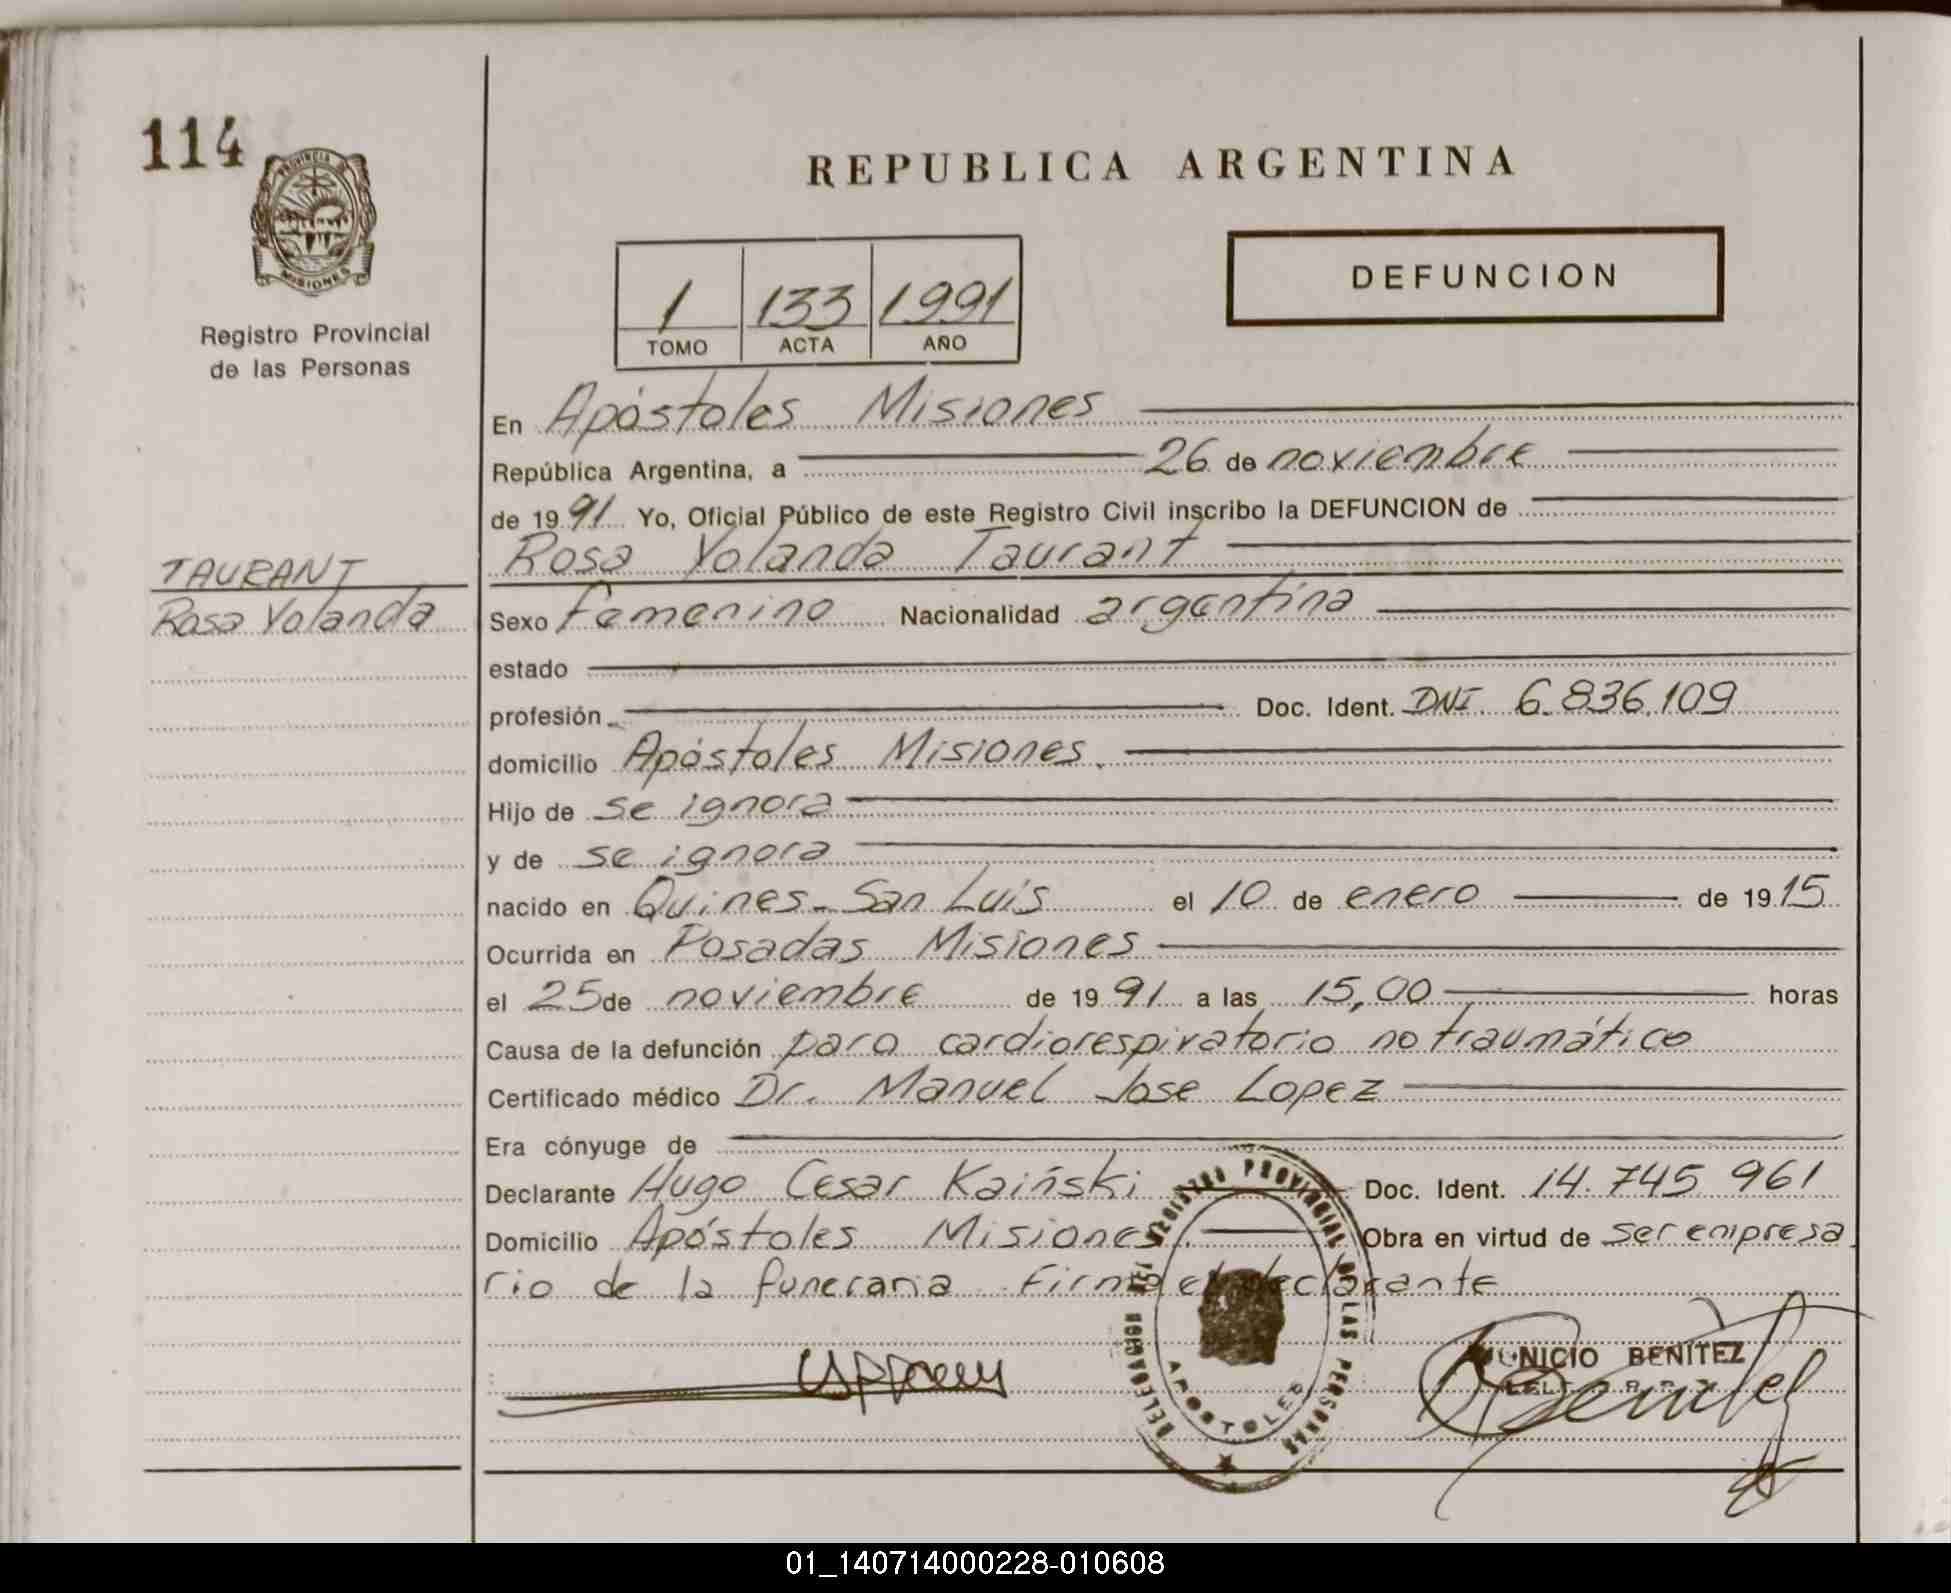 114
PROVINCIA
MISIONES
Registro Provincial
de las Personas
REPUBLICA ARGENTINA
DEFUNCION
1 133 1991
TOMO ACTA AÑO
En Apóstoles Misiones
República Argentina, a 26 de noviembre
de 19 91 Yo, Oficial Público de este Registro Civil inscribo la DEFUNCION de
Rosa Yolanda Taurant
TAURANT
Rosa Yolanda
Sexo femenino Nacionalidad argentina
estado
profesión Doc. Ident. DNI 6.836.109
domicilio Apóstoles Misiones.
Hijo de se ignora
y de se ignora
nacido en Quines - San Luis el 10 de enero de 19 15
Ocurrida en Posadas Misiones
el 25 de noviembre de 19 91 a las 15,00 horas
Causa de la defunción paro cardiorespiratorio no traumático
Certificado médico Dr. Manuel Jose Lopez
Era cónyuge de
Declarante Hugo Cesar Kaiński Doc. Ident. 14.745.961
Domicilio Apóstoles Misiones. Obra en virtud de ser empresa
rio de la funeraria Firma el declarante
DELEGACION DEL REGISTRO PROVINCIAL DE LAS PERSONAS
APOSTOLES
BENITEZ
01_140714000228-010608